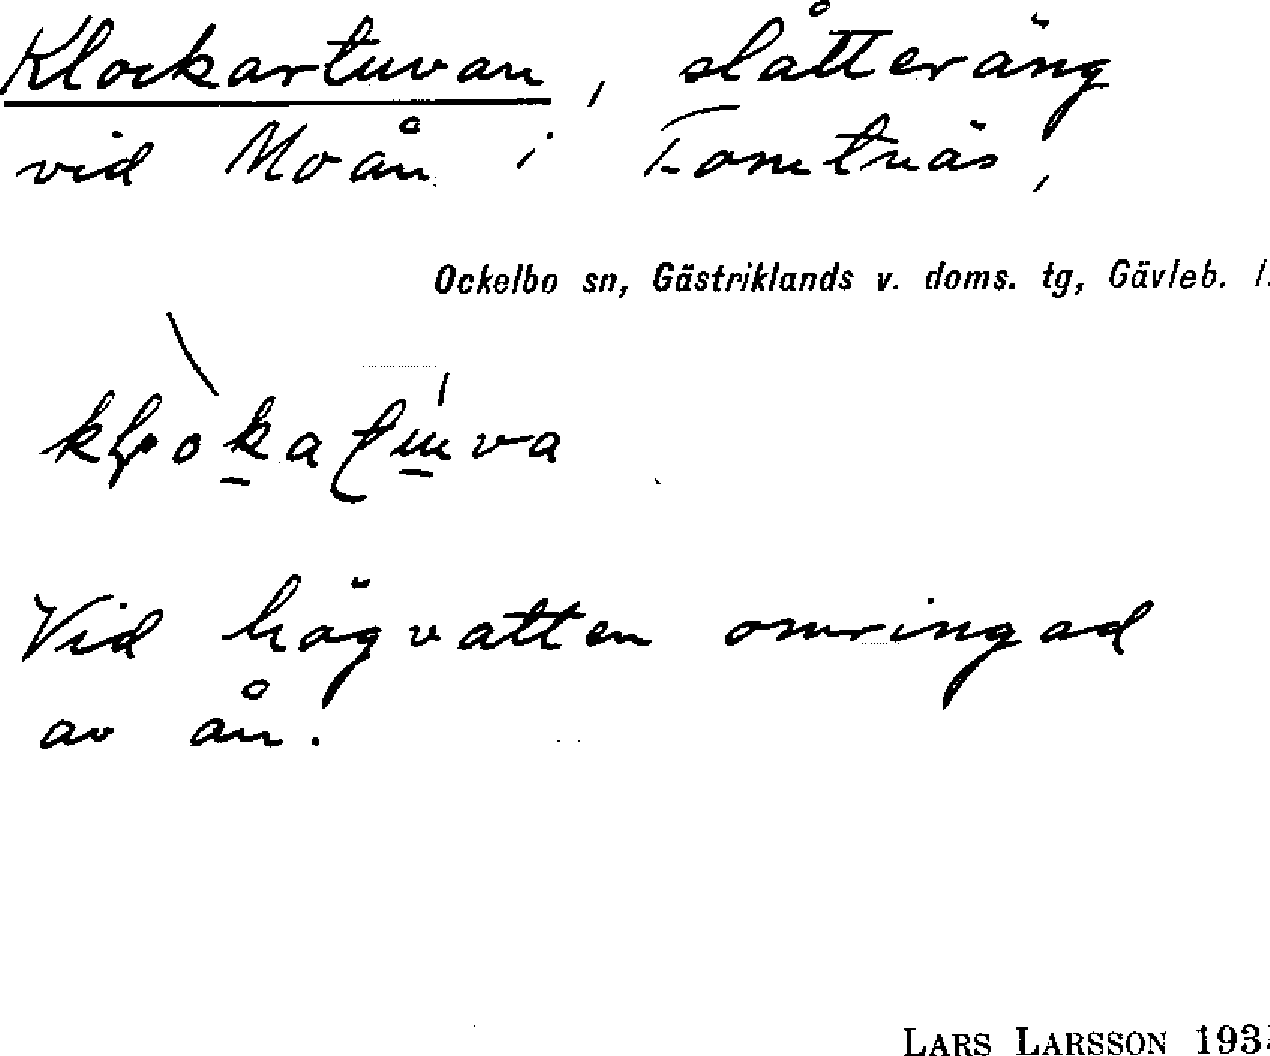 Klockartuvan, slåtteräng
vid Moån i Tomtnäs,
Ockelbo sn, Gästriklands v. doms. tg, Gävleb. l.
Vid högvatten omringad
av ån.
LARS LARSSON 193